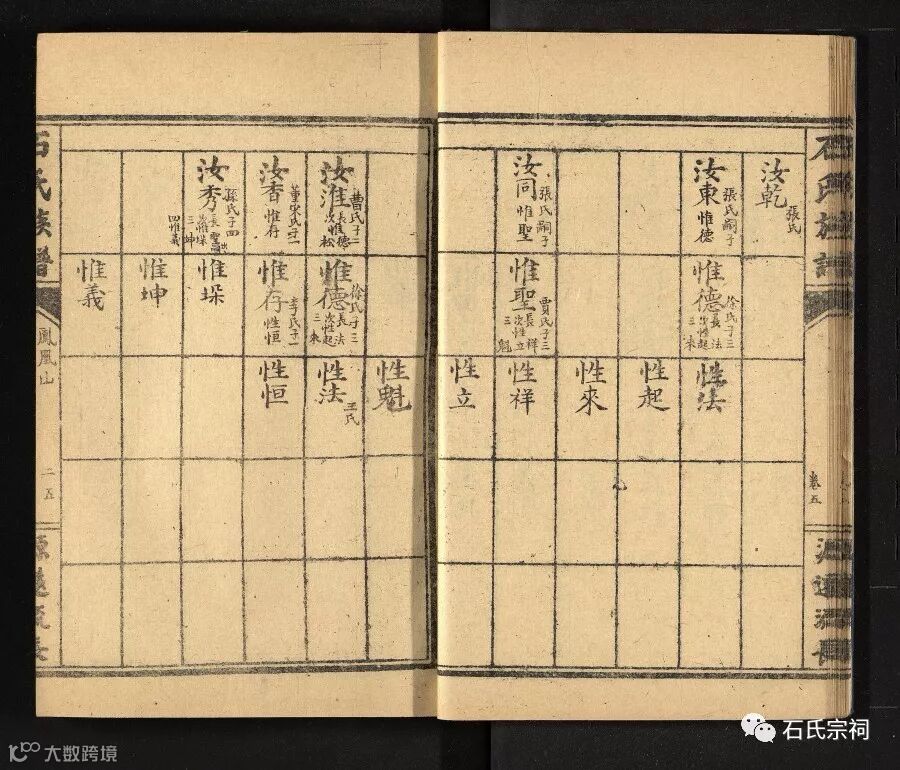 石氏族譜
卷五
源遠流長
汝乾
張氏
汝東
張氏嗣子
惟德
汝同
張氏嗣子
惟聖
惟德
徐氏子三
長性法
次性起
三來
惟聖
賈氏子三
長性祥
次性立
三魁
性法
性起
性來
性祥
性立
汝淮
曹氏子二
長惟德
次惟松
汝香
惟存
汝秀
孫氏子四
三坤
四惟義
惟德
徐氏子三
長性法
次性起
三來
惟存
李氏子一
性恒
惟垛
惟坤
惟義
性魁
性法
王氏
性恒
石氏族譜
鳳凰山
二五
源遠流長
石氏宗祠
大数跨境